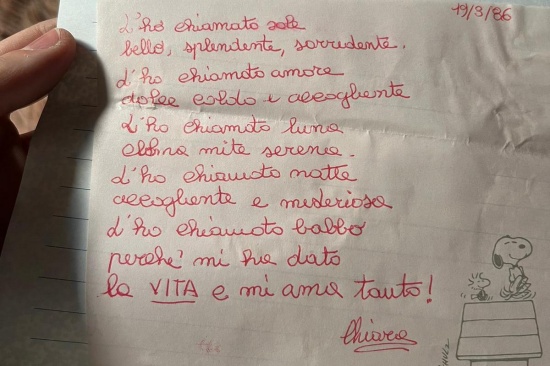 19/3/86
L'ho chiamato sole
bello, splendente, sorridente.
L'ho chiamato amore
dolce caldo e accogliente
L'ho chiamato luna
calma mite serena.
L'ho chiamato notte
accogliente e misteriosa
L'ho chiamato babbo
perché mi ha dato
la VITA e mi ama tanto!
Chiara